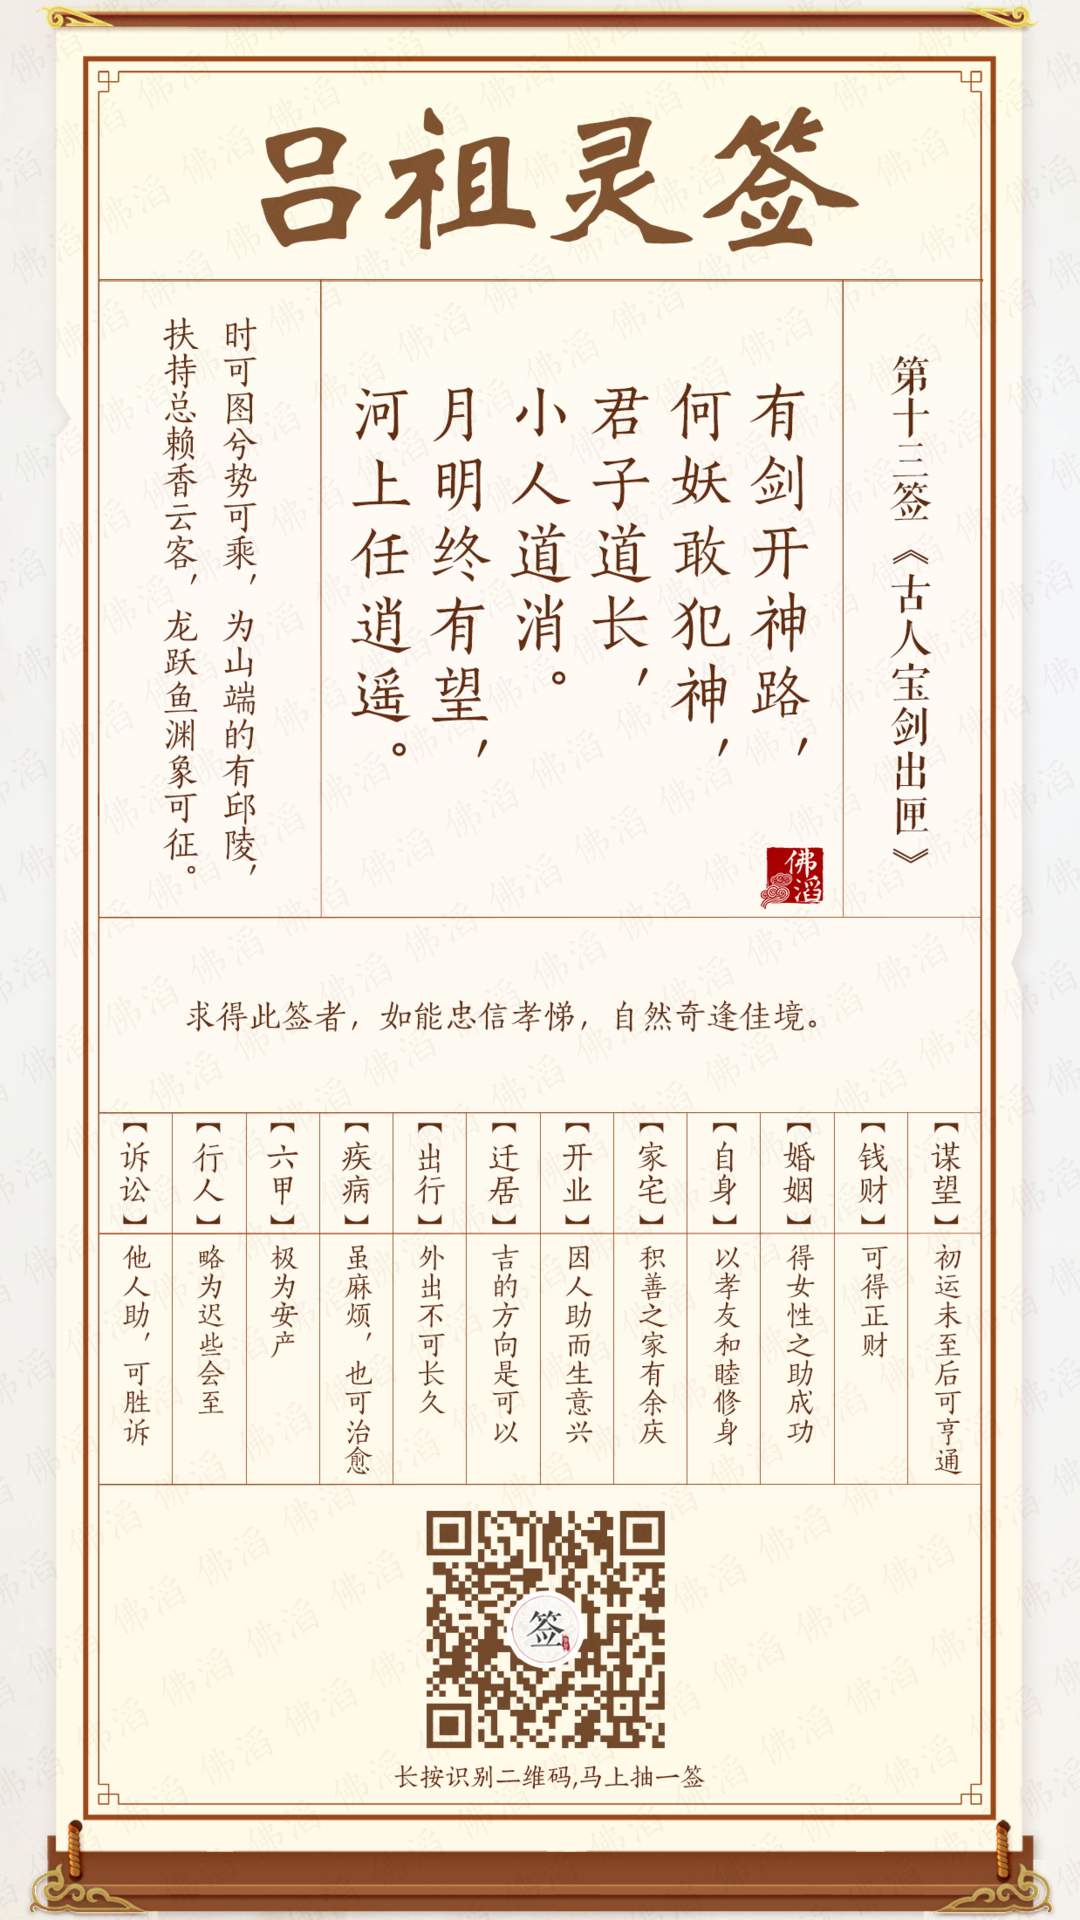 吕祖灵签
第十三签《古人宝剑出匣》
有剑开神路，
何妖敢犯神，
君子道长，
小人道消。
月明终有望，
河上任逍遥。
佛滔
时可图兮势可乘，为山端的有邱陵，
扶持总赖香云客，龙跃鱼渊象可征。
求得此签者，如能忠信孝悌，自然奇逢佳境。
【谋望】
初运未至后可亨通
【钱财】
可得正财
【婚姻】
得女性之助成功
【自身】
以孝友和睦修身
【家宅】
积善之家有余庆
【开业】
因人助而生意兴
【迁居】
吉的方向是可以
【出行】
外出不可长久
【疾病】
虽麻烦，也可治愈
【六甲】
极为安产
【行人】
略为迟些会至
【诉讼】
他人助，可胜诉
签
长按识别二维码,马上抽一签